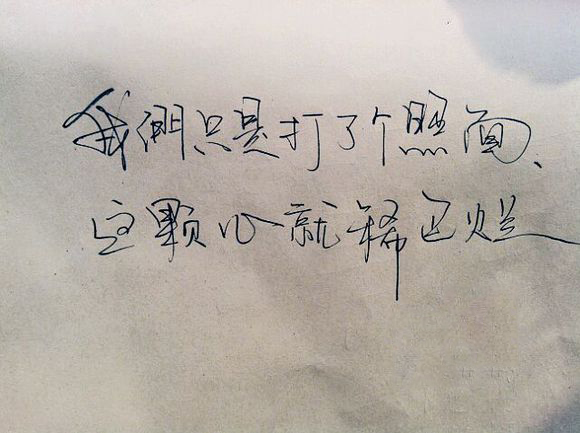 我們只是打了个照面、
这颗心就稀巴烂